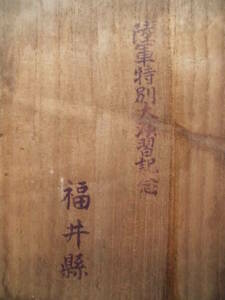 陸軍特別大演習記念
福井縣